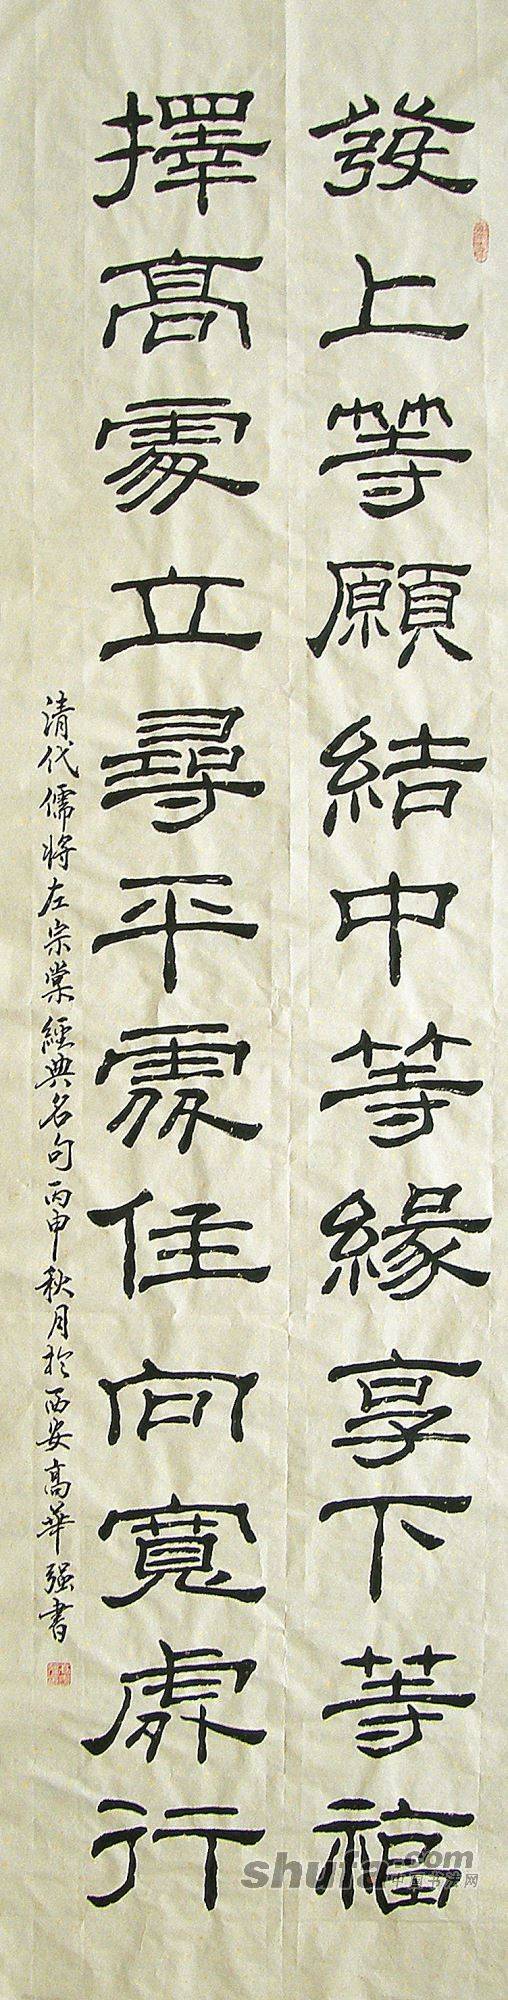 發上等願結中等緣享下等福
擇高處立尋平處住向寬處行
清代儒将左宗棠經典名句丙申秋月於西安高華强書
shufa.com
中国书法网